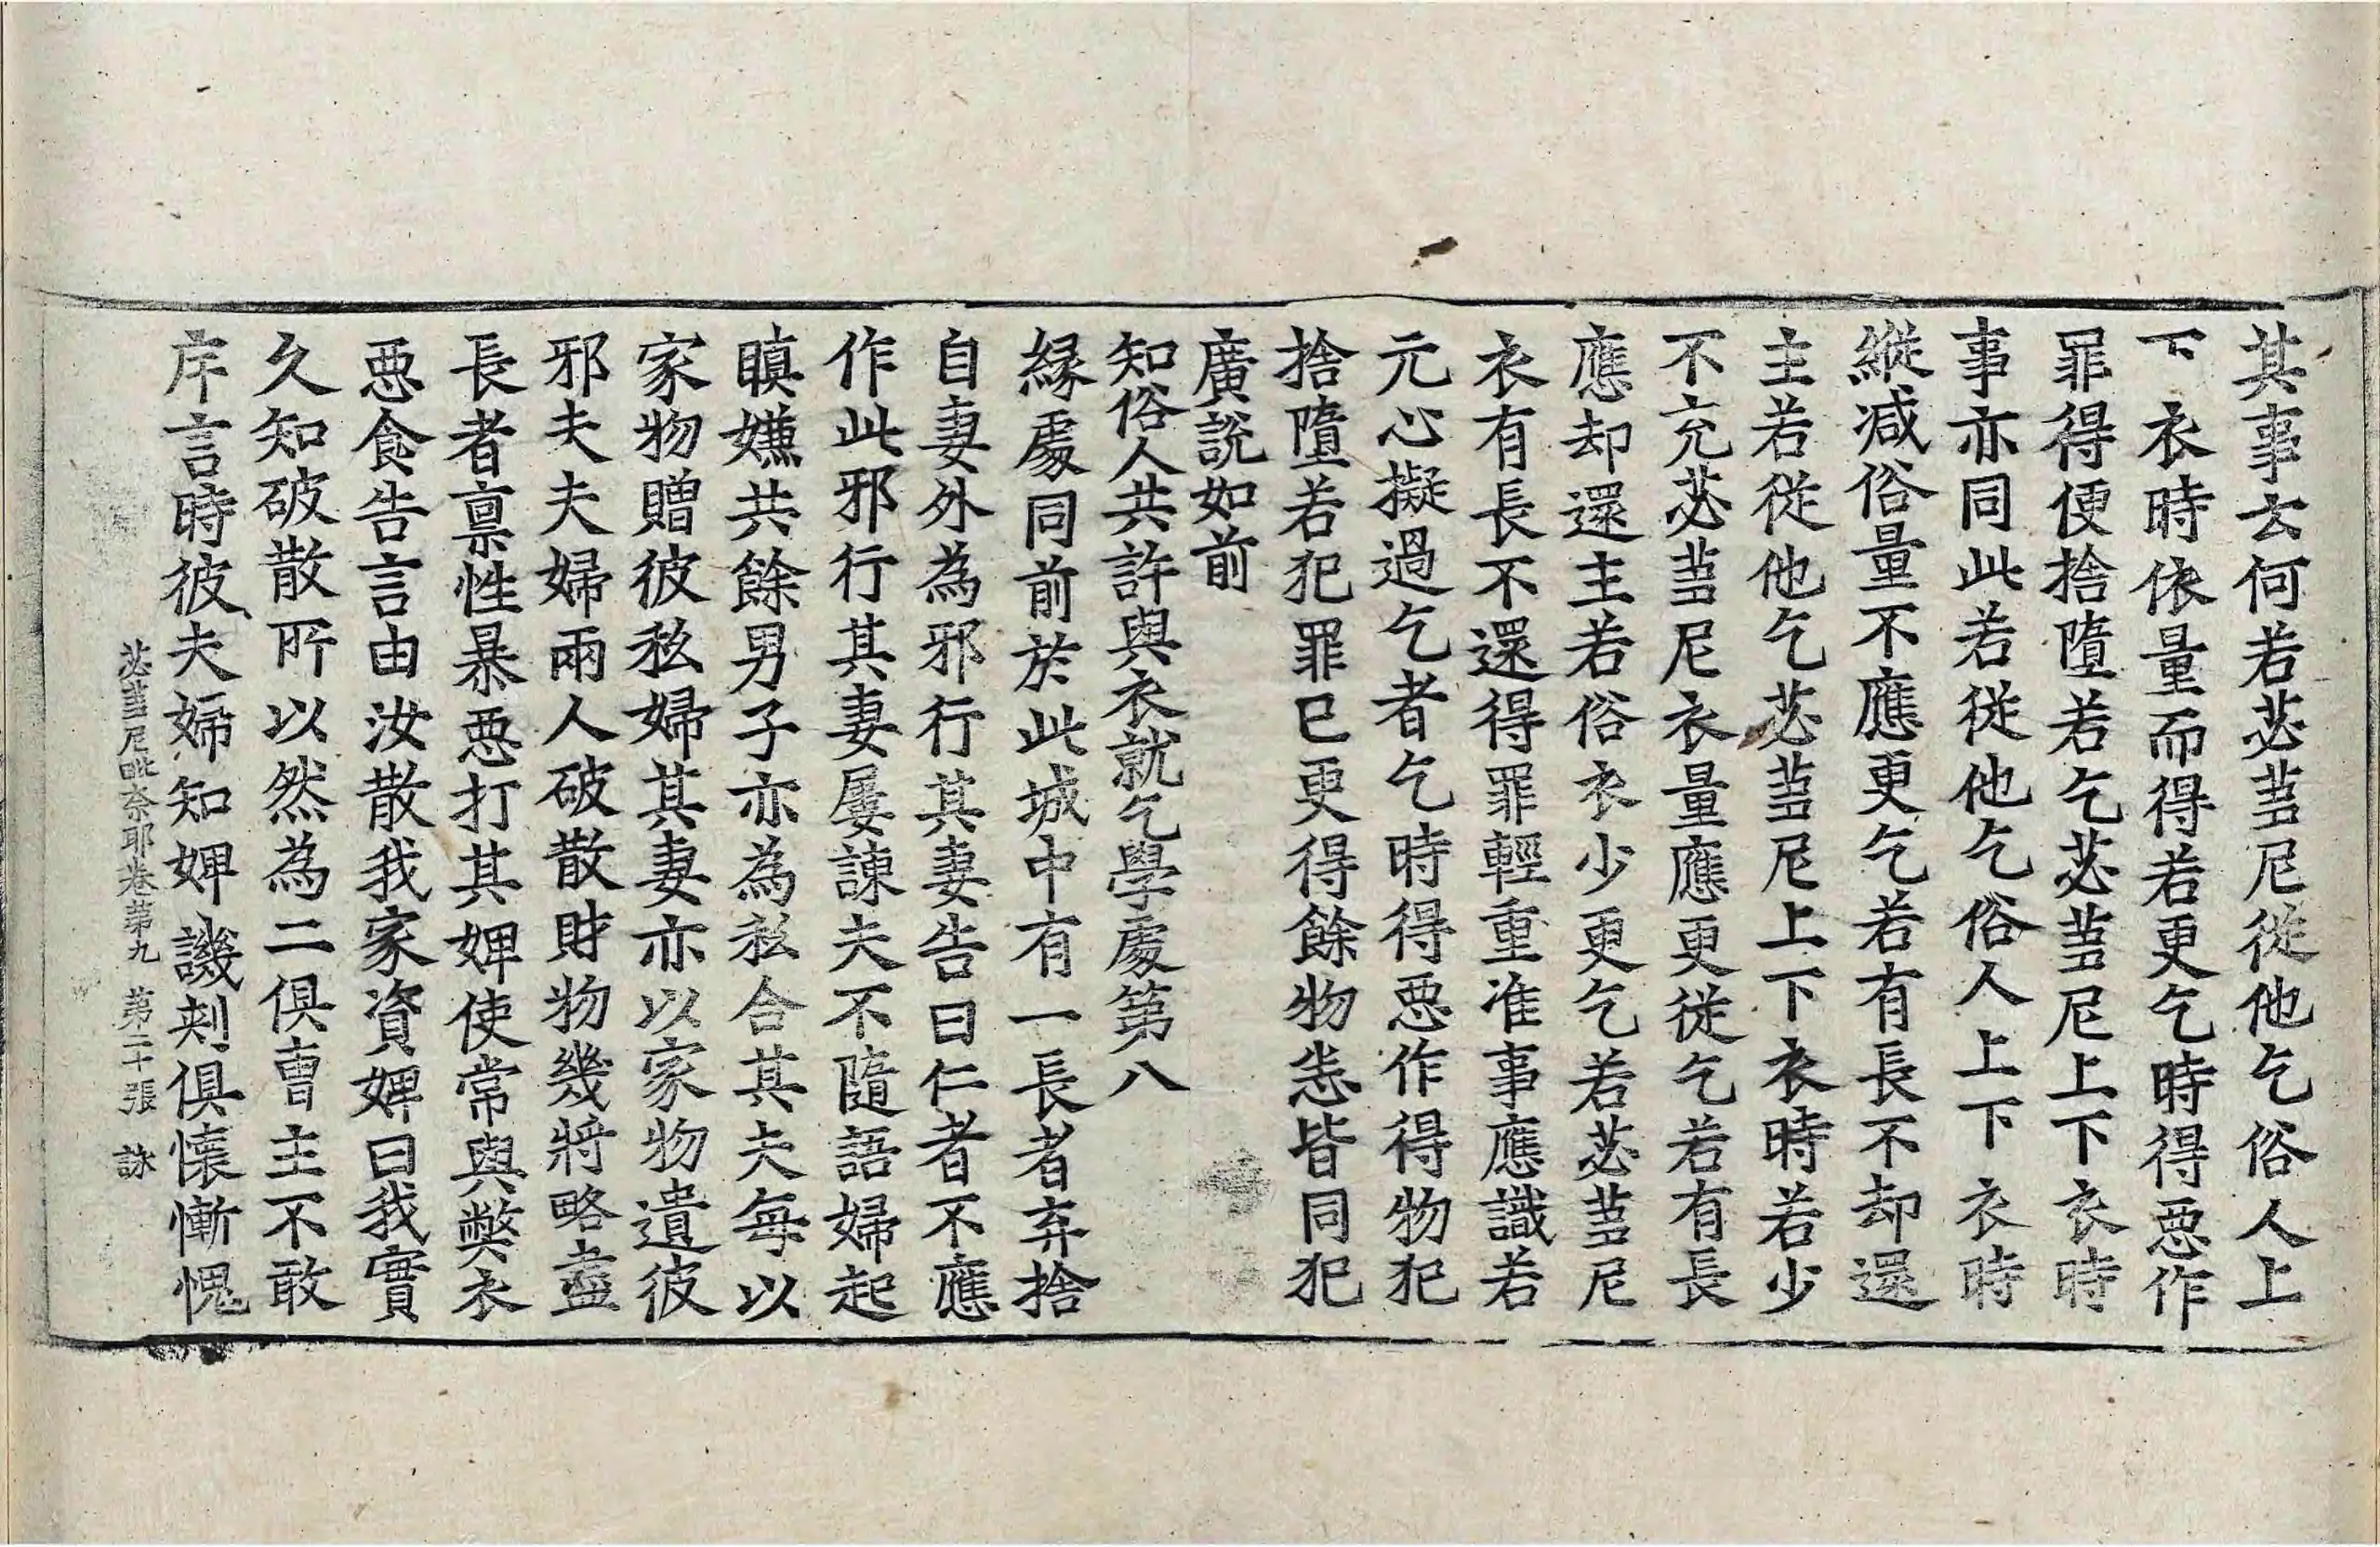 其事云何若苾蒭尼從他乞俗人上
下衣時依量而得若更乞時得惡作
罪得便捨墮若乞苾蒭尼上下衣時
事亦同此若從他乞俗人上下衣時
縱减俗量不應更乞若有長不却還
主若從他乞苾蒭尼上下衣時若少
不充苾蒭尼衣量應更從乞若有長
應却還主若俗衣少更乞若苾蒭尼
衣有長不還得罪輕重准事應識若
元心擬過乞者乞時得惡作得物犯
捨墮若犯罪已更得餘物恙皆同犯
廣說如前
知俗人共許與衣就乞學處第八
緣處同前於此城中有一長者弃捨
自妻外為邪行其妻告曰仁者不應
作此邪行其妻屢諫夫不隨語婦起
瞋嫌共餘男子亦為私合其夫每以
家物贈彼私婦其妻亦以家物遺彼
邪夫夫婦兩人破散財物幾將略盡
長者禀性暴惡打其婢使常與獘衣
惡食告言由汝散我家資婢曰我實
久知破散所以然為二俱曹主不敢
斥言時彼夫婦知婢譏刾俱懷慚愧
苾蒭尼毗奈耶卷第九 第二十張 詠